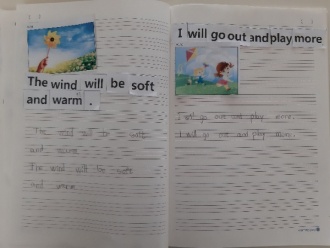 The wind will be soft
and warm .
The wind will be soft
and warm
The wind will be soft
and warm
I will go out and play more
I will go out and play more.
I will go out and play more.